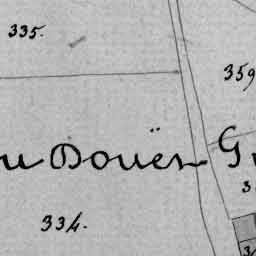 335.
359
u Douër G
334.